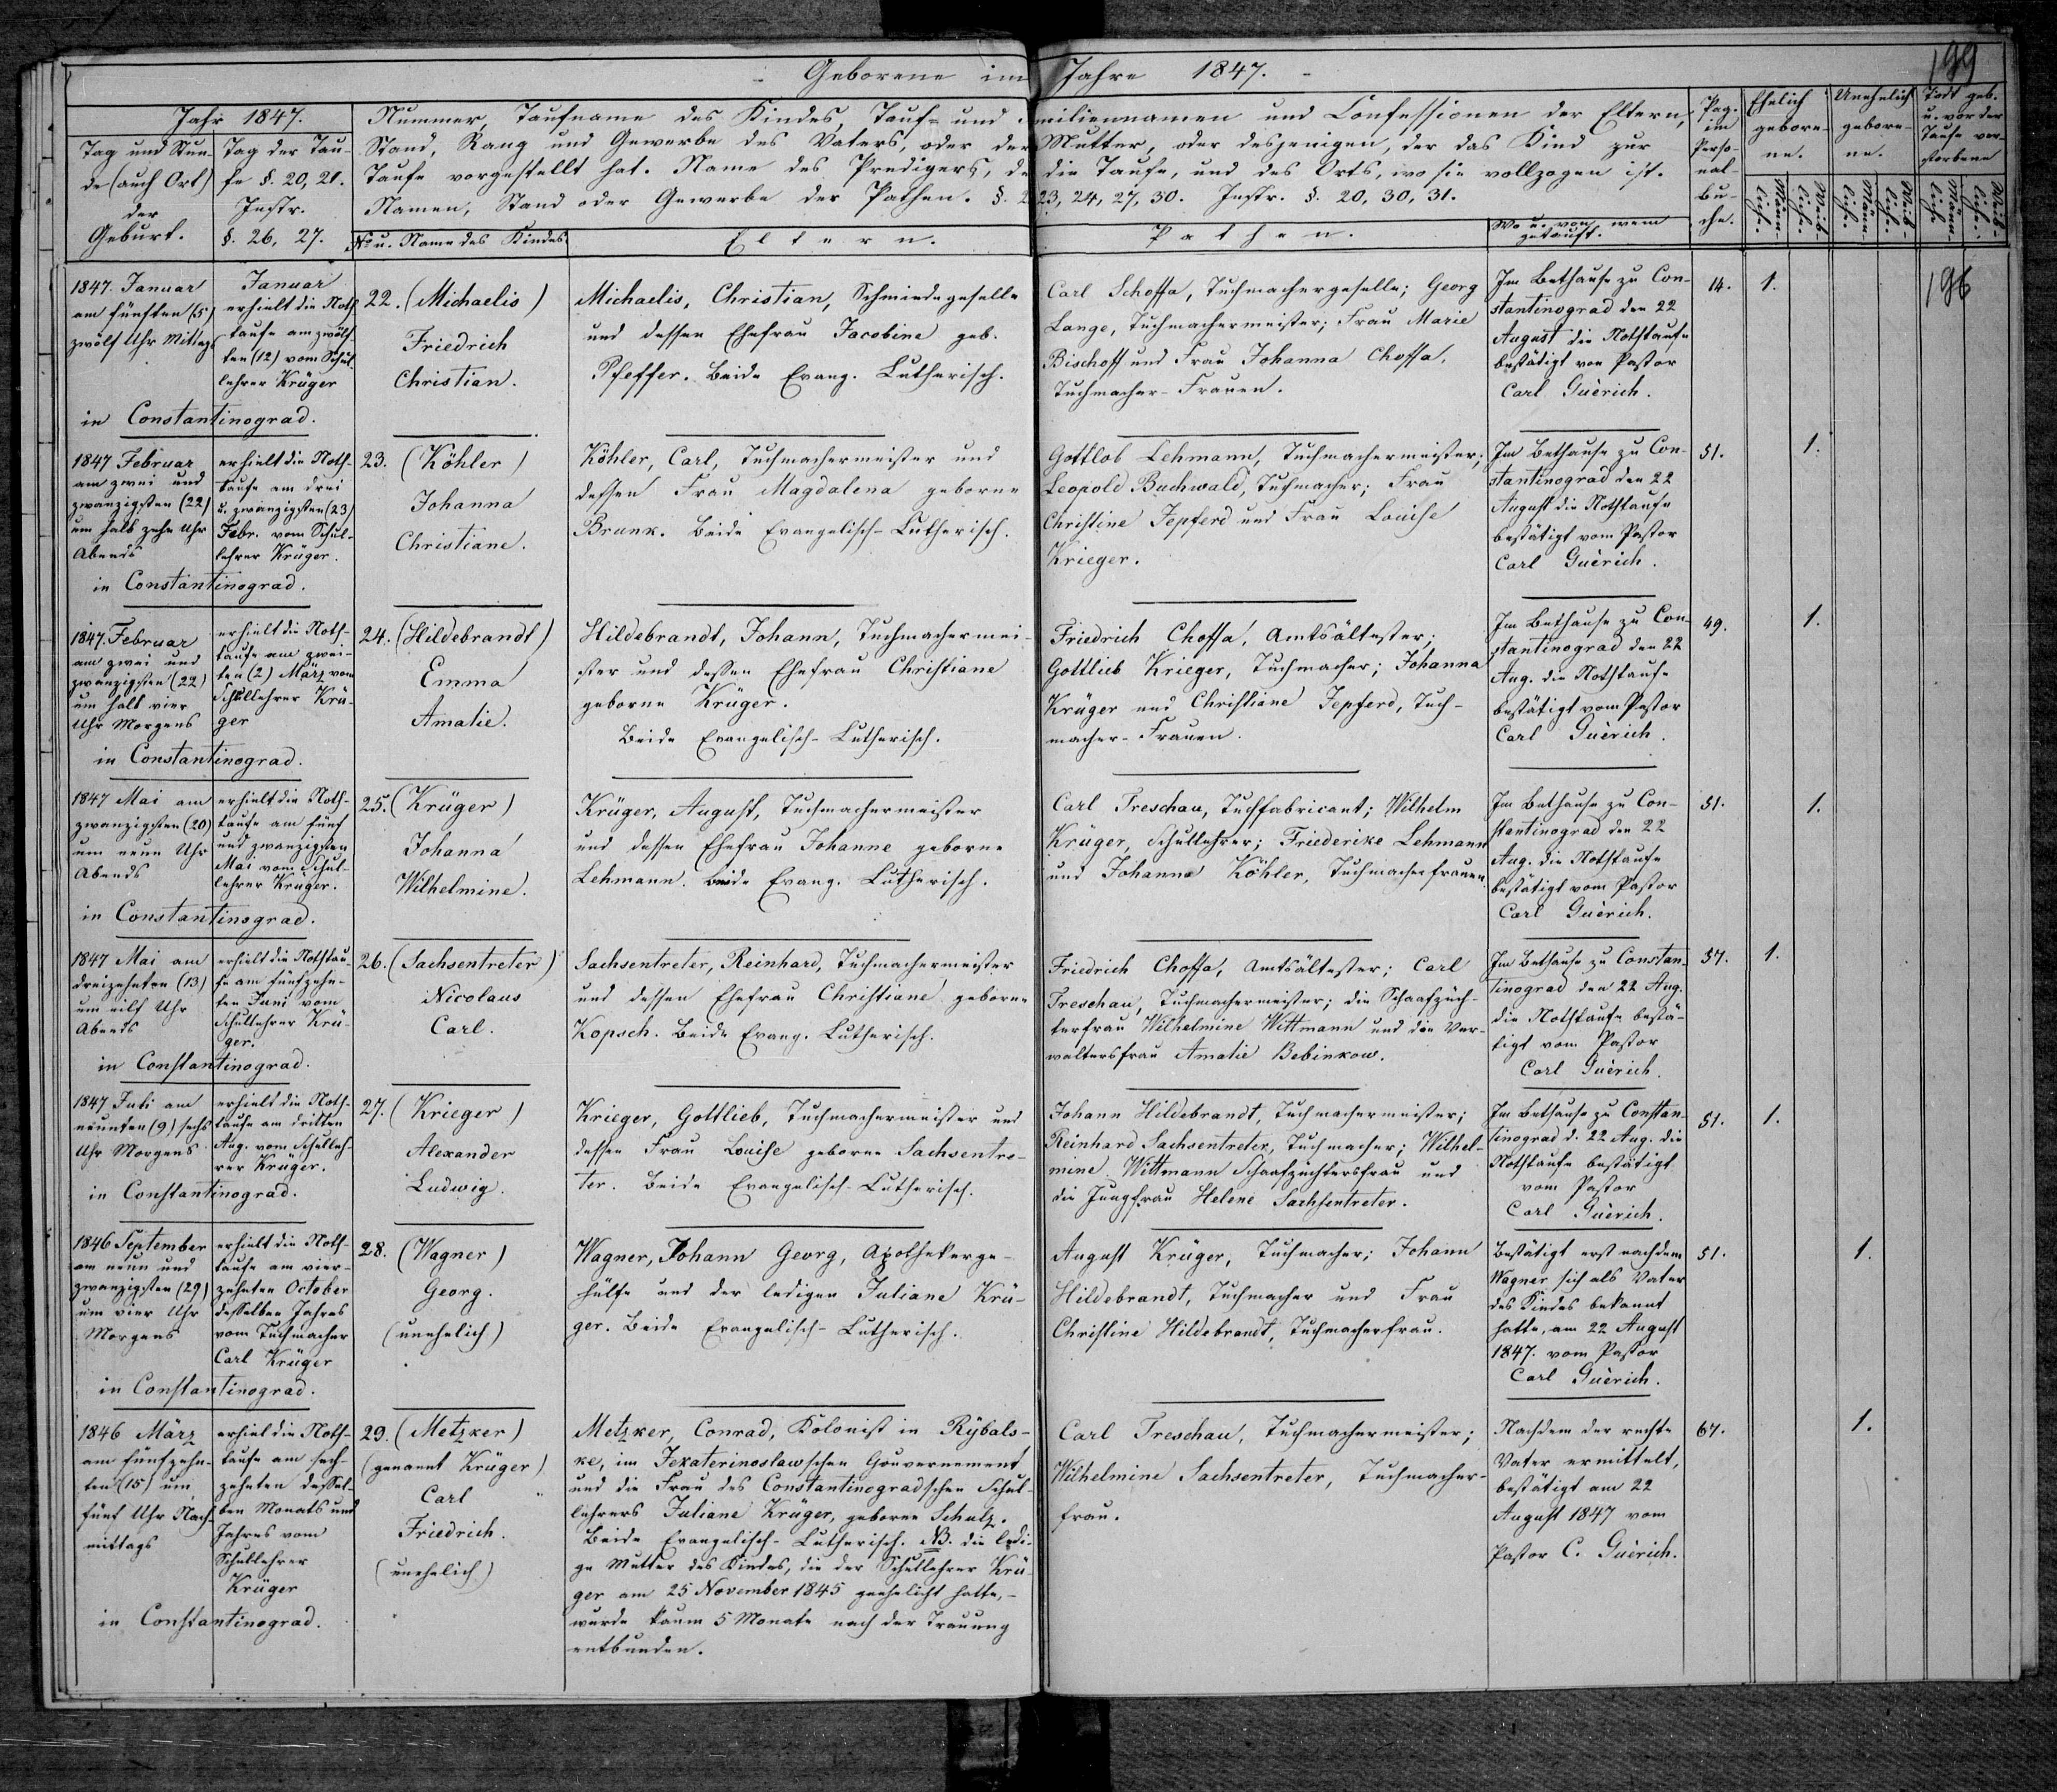 Geborene im Jahre 1847.
199
Jahr 1847.
Tag und Stun-
de (auch Ort)
der
Geburt.
Tag der Tau-
fe §. 20, 21.
Instr.
§. 26, 27.
Nummer, Taufname des Kindes, Tauf- und Familiennamen und Confessionen der Eltern,
Stand, Rang und Gewerbe des Vaters, oder der Mutter, oder desjenigen, der das Kind zur
Taufe vorgestellt hat. Name des Predigers, der die Taufe, und des Orts, wo sie vollzogen ist.
Namen, Stand oder Gewerbe der Pathen. §. 23, 24, 27, 30. Instr. §. 20, 30, 31.
No u. Name des Kindes
Eltern.
Pathen.
Wo u. von wem
getauft.
Pag.
im
Perso-
nal-
bu-
che.
Ehelich
gebore-
ne.
Unehelich
gebore-
ne.
Todt geb.
u. vor der
Taufe ver-
storbene
Männ-
lich.
Weib-
lich.
Männ-
lich.
Weib-
lich.
Männ-
lich.
Weib-
lich.
196
1847. Januar
am fünften (5)
zwölf Uhr Mittags
in Constantinograd.
Januar
erhielt die Noth-
taufe am zwölf-
ten (12) vom Schul-
lehrer Krüger
22. (Michaelis)
Friedrich
Christian.
Michaelis, Christian, Schmiedegeselle
und dessen Ehefrau Jacobine geb.
Pfeffer. Beide Evang. Lutherisch.
Carl Schoffa, Tuchmachergeselle; Georg
Lange, Tuchmachermeister; Frau Marie
Bischoff und Frau Johanna Choffa,
Tuchmacher-Frauen.
Im Bethause zu Con-
stantinograd den 22
August die Nothtaufe
bestätigt von Pastor
Carl Guèrich.
14.
1.
1847 Februar
am zwei und
zwanzigsten (22)
um halb zehn Uhr
Abends
in Constantinograd.
erhielt die Noth-
taufe am drei
u. zwanzigsten (23)
Febr. vom Schul-
lehrer Krüger.
23. (Köhler)
Johanna
Christiane.
Köhler, Carl, Tuchmachermeister und
dessen Frau Magdalena geborne
Brunk. Beide Evangelisch-Lutherisch.
Gottlob Lehmann, Tuchmachermeister;
Leopold Buchwald, Tuchmacher; Frau
Christine Jepferd und Frau Louise
Krieger.
Im Bethause zu Con-
stantinograd den 22
August die Nothtaufe
bestätigt vom Pastor
Carl Guèrich.
51.
1.
1847. Februar
am zwei und
zwanzigsten (22)
um halb vier
Uhr Morgens
in Constantinograd.
erhielt die Noth-
taufe am zwei-
ten (2) März vom
Schullehrer Krü-
ger
24. (Hildebrandt)
Emma
Amalie.
Hildebrandt, Johann, Tuchmachermei-
ster und dessen Ehefrau Christiane
geborne Krüger.
Beide Evangelisch-Lutherisch.
Friedrich Choffa, Amtsältester;
Gottlieb Krieger, Tuchmacher; Johanna
Krüger und Christiane Jepferd, Tuch-
macher-Frauen.
Im Bethause zu Con-
stantinograd den 22
Aug. die Nothtaufe
bestätigt vom Pastor
Carl Guèrich.
49.
1.
1847 Mai am
zwanzigsten (20)
um neun Uhr
Abends
in Constantinograd.
erhielt die Noth-
taufe am fünf
und zwanzigsten
Mai vom Schul-
lehrer Krüger.
25. (Krüger)
Johanna
Wilhelmine.
Krüger, August, Tuchmachermeister
und dessen Ehefrau Johanne geborne
Lehmann. Beide Evang. Lutherisch.
Carl Treschau, Tuchfabricant; Wilhelm
Krüger, Schullehrer; Friederike Lehmann
und Johanna Köhler, Tuchmacherfrauen.
Im Bethause zu Con-
stantinograd den 22
Aug. die Nothtaufe
bestätigt vom Pastor
Carl Guèrich.
51.
1.
1847 Mai am
dreizehnten (13)
um eilf Uhr
Abends
in Constantinograd.
erhielt die Nothtau-
fe am fünfzehn-
ten Juni vom
Schullehrer Krü-
ger.
26. (Sachsentreter)
Nicolaus
Carl.
Sachsentreter, Reinhard, Tuchmachermeister
und dessen Ehefrau Christiane geborne
Kopsch. Beide Evang. Lutherisch.
Friedrich Choffa, Amtsältester; Carl
Treschau, Tuchmachermeister; die Schaafzüch-
terfrau Wilhelmine Wittmann und die Ver-
waltersfrau Amalie Bebinkow.
Im Bethause zu Constan-
tinograd den 22 Aug.
die Nothtaufe bestä-
tigt vom Pastor
Carl Guèrich.
57.
1.
1847 Juli am
neunten (9) sechs
Uhr Morgens
in Constantinograd.
erhielt die Noth-
taufe am dritten
Aug. vom Schulleh-
rer Krüger.
27. (Krieger)
Alexander
Ludwig.
Krieger, Gottlieb, Tuchmachermeister und
dessen Frau Louise geborne Sachsentre-
ter. Beide Evangelisch-Lutherisch.
Johann Hildebrandt, Tuchmachermeister;
Reinhard Sachsentreter, Tuchmacher; Wilhel-
mine Wittmann Schaafzüchtersfrau und
die Jungfrau Helene Sachsentreter.
Im Bethause zu Constan-
tinograd d. 22 Aug. die
Nothtaufe bestätigt
vom Pastor
Carl Guèrich.
51.
1.
1846 September
am neun und
zwanzigsten (29)
um vier Uhr
Morgens
in Constantinograd.
erhielt die Noth-
taufe am vier-
zehnten October
desselben Jahres
vom Tuchmacher
Carl Krüger
28. (Wagner)
Georg.
(unehelich)
Wagner, Johann Georg, Apothekerge-
hülfe und der ledigen Juliane Krü-
ger. Beide Evangelisch-Lutherisch.
August Krüger, Tuchmacher; Johann
Hildebrandt, Tuchmacher und Frau
Christine Hildebrandt, Tuchmacherfrau.
Bestätigt erst nachdem
Wagner sich als Vater
des Kindes bekannt
hatte, am 22 August
1847. vom Pastor
Carl Guèrich.
51.
1.
1846 März
am fünfzehn-
ten (15) um
fünf Uhr Nach-
mittags
in Constantinograd.
erhiel die Noth-
taufe am sech-
zehnten dessel-
ben Monats und
Jahres vom
Schullehrer
Krüger
29. (Metzker)
(genannt Krüger)
Carl
Friedrich.
(unehelich)
Metzker, Conrad, Kolonist in Rybals-
ke, im Jekaterinoslawschen Gouvernement
und die Frau des Constantinogradschen Schul-
lehrers Juliane Krüger, geborne Schulz.
Beide Evangelisch-Lutherisch. NB. die ledi-
ge Mutter des Kindes, die der Schullehrer Krü-
ger am 25 November 1845 geehelicht hatte,-
wurde kaum 5 Monate nach der Trauung
entbunden.
Carl Treschau, Tuchmachermeister;
Wilhelmine Sachsentreter, Tuchmacher-
frau.
Nachdem der rechte
Vater ermittelt,
bestätigt am 22
August 1847 vom
Pastor C. Guèrich.
67.
1.